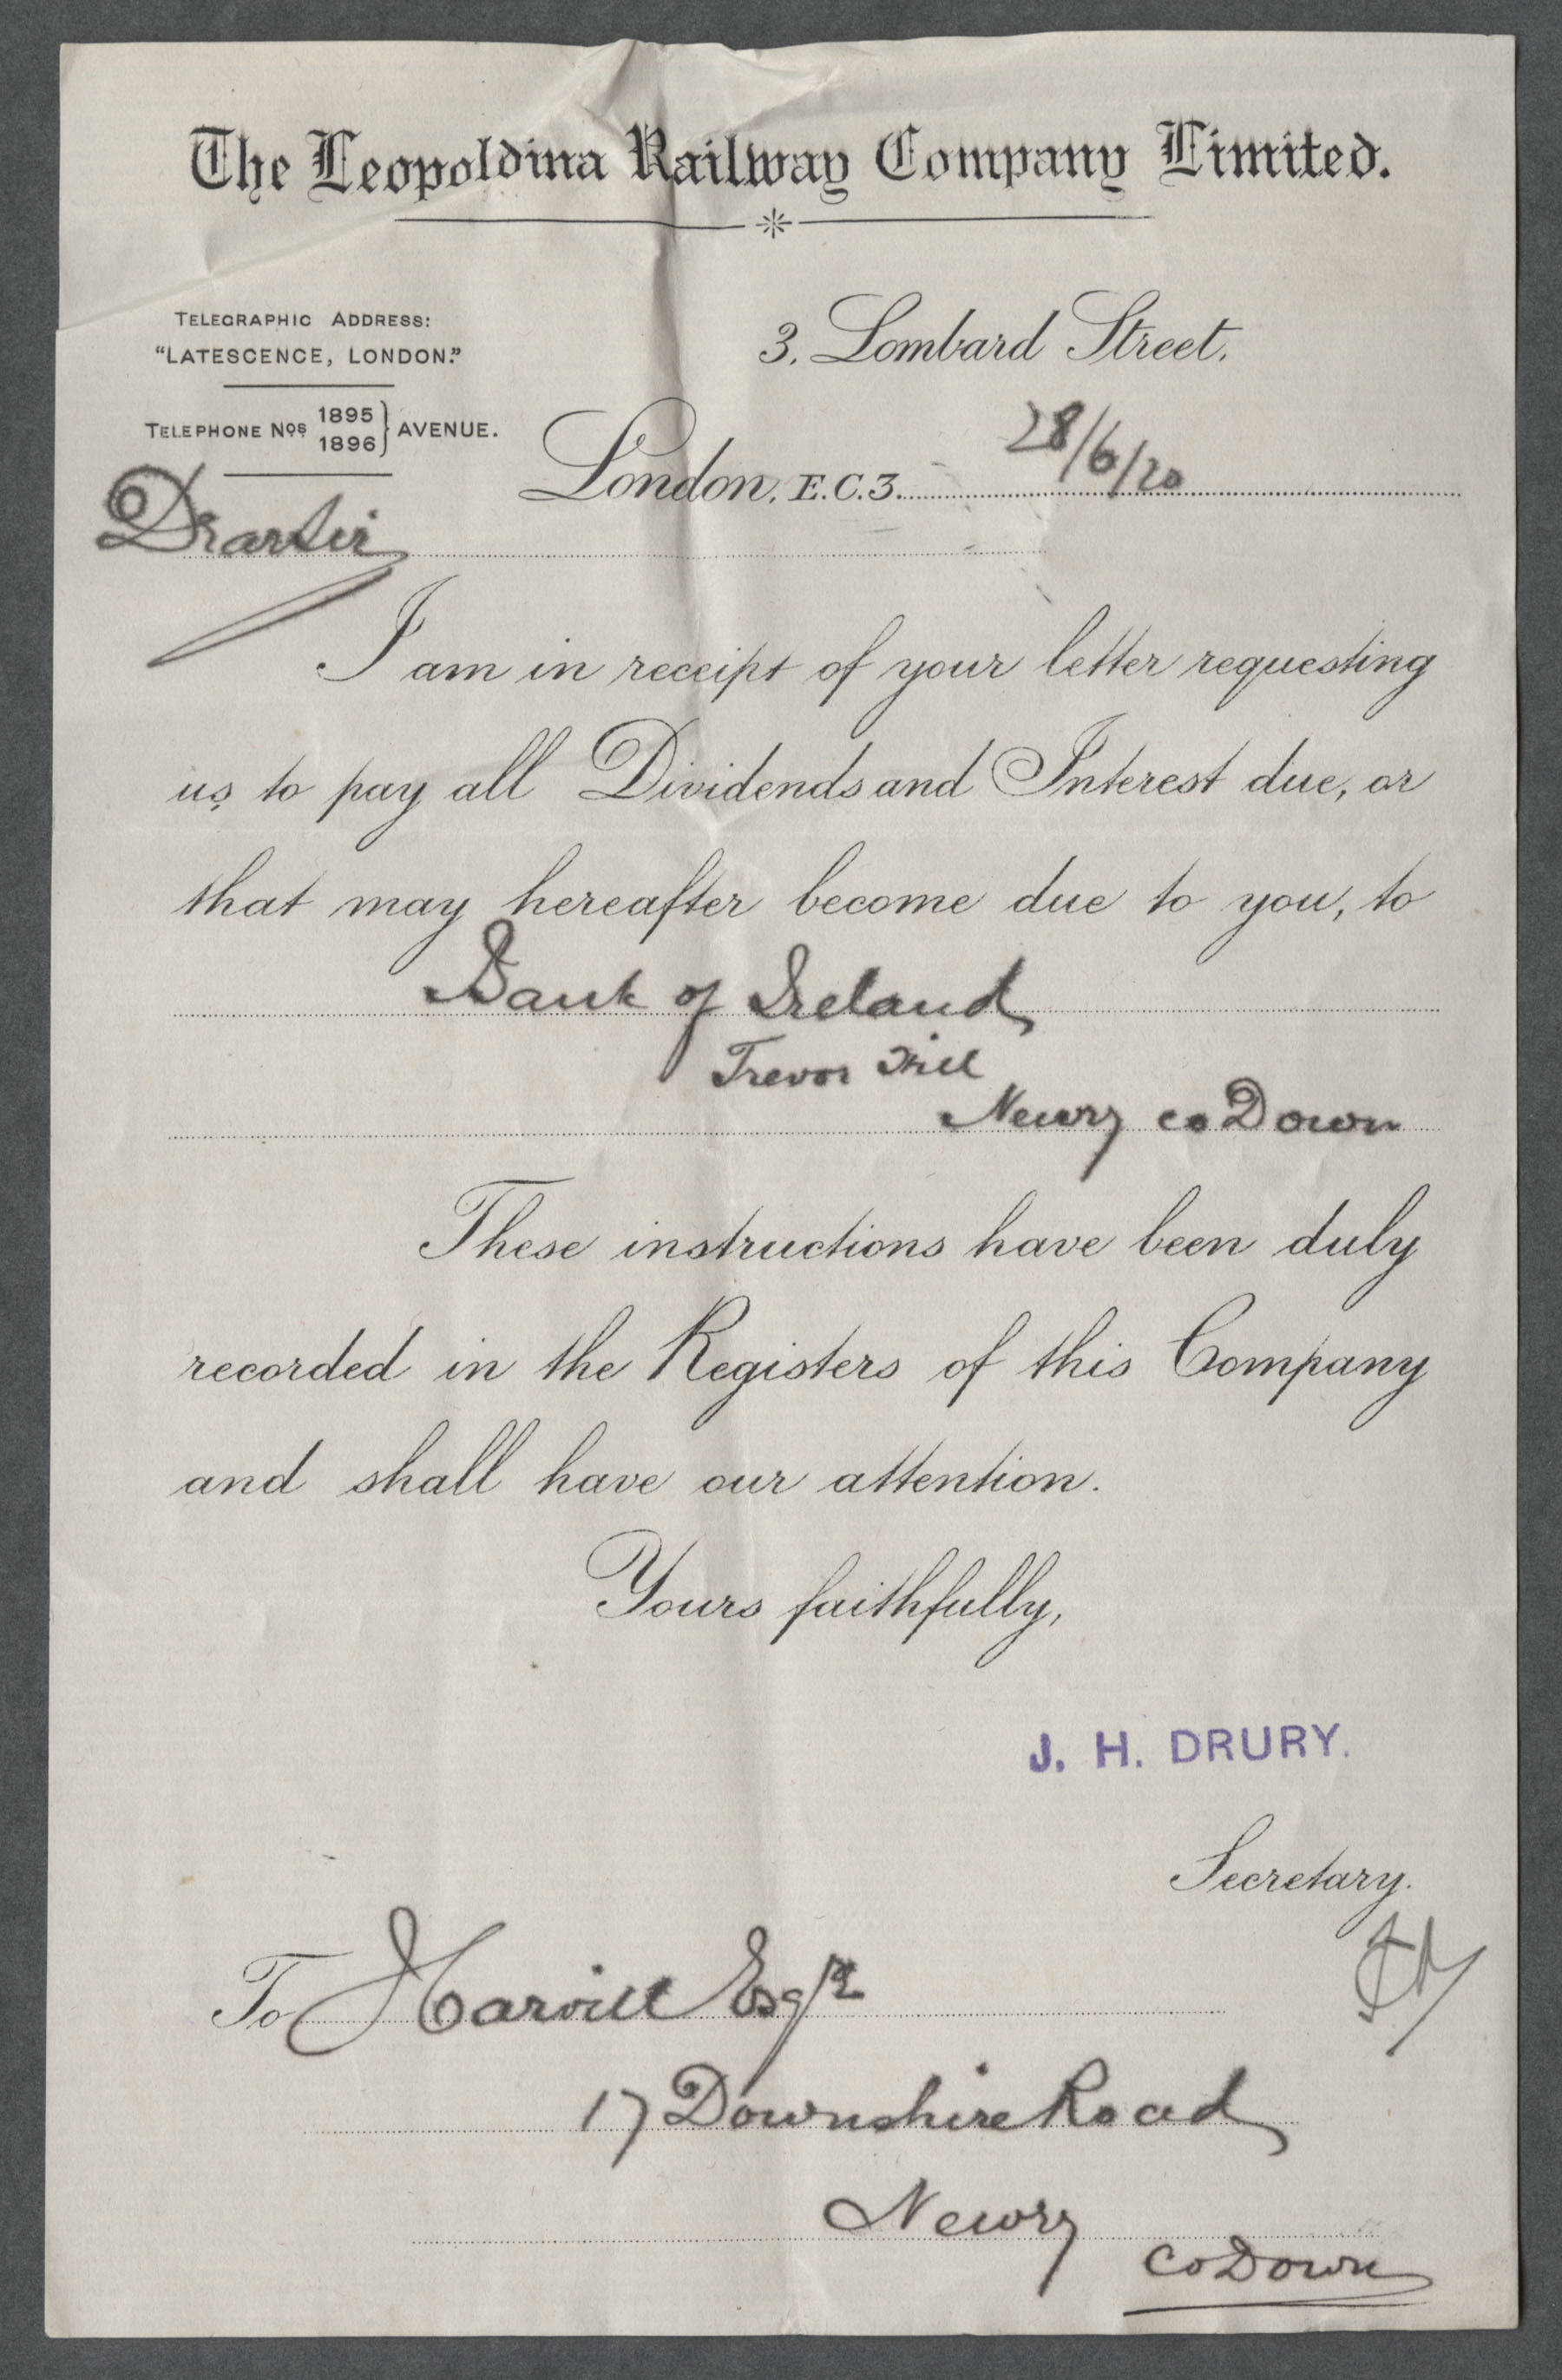 The Leopoldina Railway Company Limited.
TELEGRAPHIC ADDRESS:
"LATESCENCE, LONDON."
TELEPHONE Nos 1895 1896 } AVENUE.
3, Lombard Street,
London, E.C.3. 28/6/20
Dear Sir
I am in receipt of your letter requesting
us to pay all Dividends and Interest due, or
that may hereafter become due to you, to
Bank of Ireland
Trevor Hill
Newry co Down
These instructions have been duly
recorded in the Registers of this Company
and shall have our attention.
Yours faithfully,
J. H. DRURY.
Secretary.
To J Carvill Esqre
17 Downshire Road
Newry
Co Down